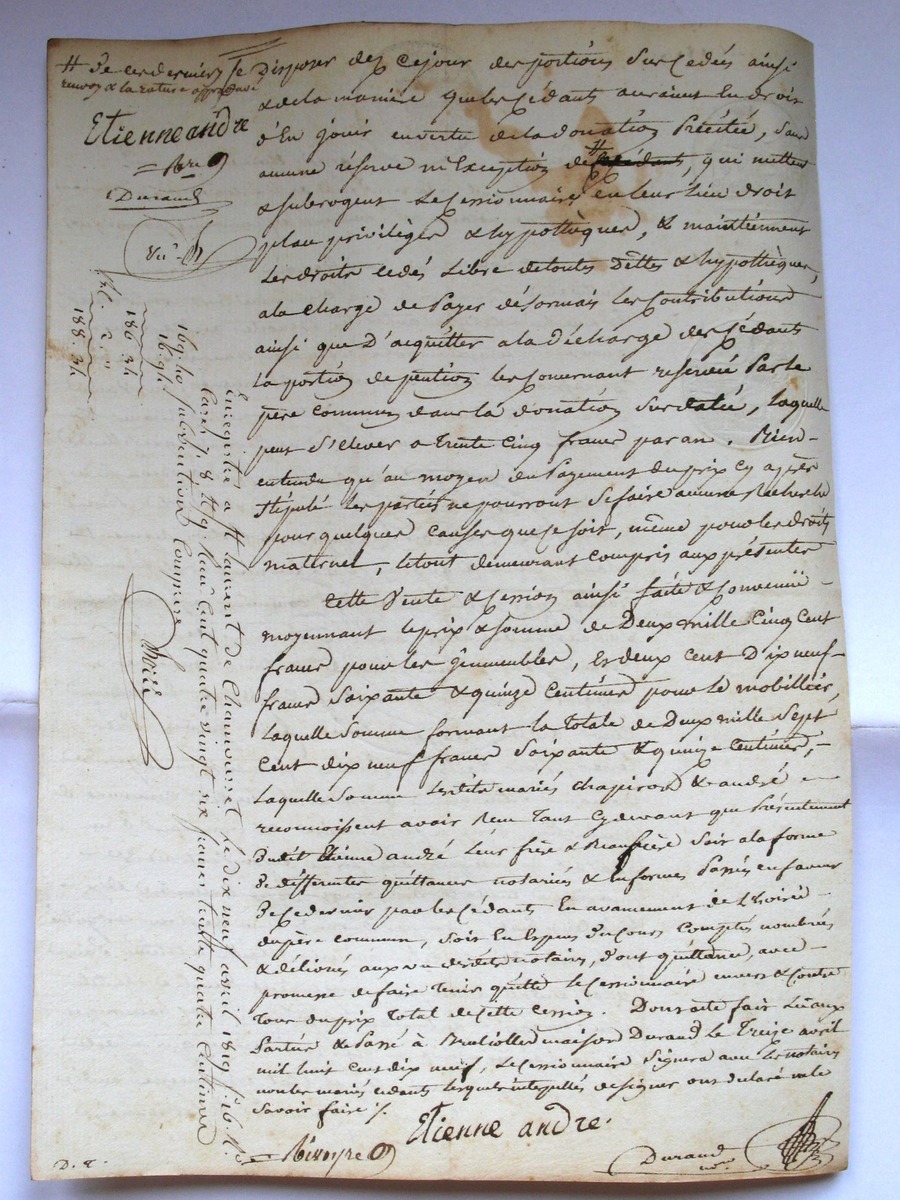 # de ces derniers /.
renvoy & la rature approuvée
Etienne andré
Durand
Disposer dez Cejour des portions Sus Cedées ainsi
& de la manière que les Cédants auraient En droit
d'En jouir en vertu de la donation Précitée, Sans
aucune réserve ni Exception # qui mettent
& subrogent Le Cessionnaire en leur lieu droit
place privilèges & hypothèques, & maintiennent
Les droits cedés Libre de toutes Dettes & hypothèques,
a la charge de Payer désormais les Contributions
ainsi que D'acquitter a la décharge des Cédants
La portion de pention les Concernant reservée Par le
père commun dans la donation Sus datée, laquelle
peut S'élever a Trente Cinq francs par an. Bien
entendu qu'au moyen du Payement du prix Cy après
Stipulé Les parties ne pourront Se faire aucune Recherche
pour quelques Causes que ce soit, même pour les droits
maternel, le tout demeurant compris aux présentes
Cette Vente & Cession ainsi faite & Convenüe
moyennant le prix & somme de Deux mille Cinq Cent
francs pour les immeubles, & deux cent Dix neuf
francs Soixante & quinze Centimes pour le mobillier,
Laquelle Somme formant la Totale de Deux mille Sept
Cent dix neuf francs Soixante & quinze Centimes,
Laquelle Somme Lesdits mariés chapiron & andré
reconnoissent avoir Reçu Tant Cy devant que Présentement
Dudit Etienne andré Leur frère & Beaufrère Soit a la forme
de differentes quittances notariées & informes Passées en faveur
de Ce dernier par les Cédants En avancement de L'hoirie
du père commun, Soit En Espèces du Cours Comptés nombrés
& délivrés aux vu desdits notaires, d'ont quittance, avec
promesse de faire Tenir quitte le Cessionnaire envers & Contre
Tous du prix Total de Cette Cession. Dont acte fait Lu aux
Parties & Passé à Brulliolles maison Durand le Treize avril
mil huit Cent dix neuf, Le Cessionnaire Signera avec Les notaires
non les mariés cédants lesquels interpellés de signer ont declaré ne le
Savoir faire /.
Etienne andre.
Durand
D. E.
Enregistré a St Laurent de Chamousset le dix neuf avril 1819 fo 16 Ro
Cases 7. 8 & 9. Reçu Cent quatre vingt six francs trente quatre Centimes
subvention Comprise
186. 34
188. 34